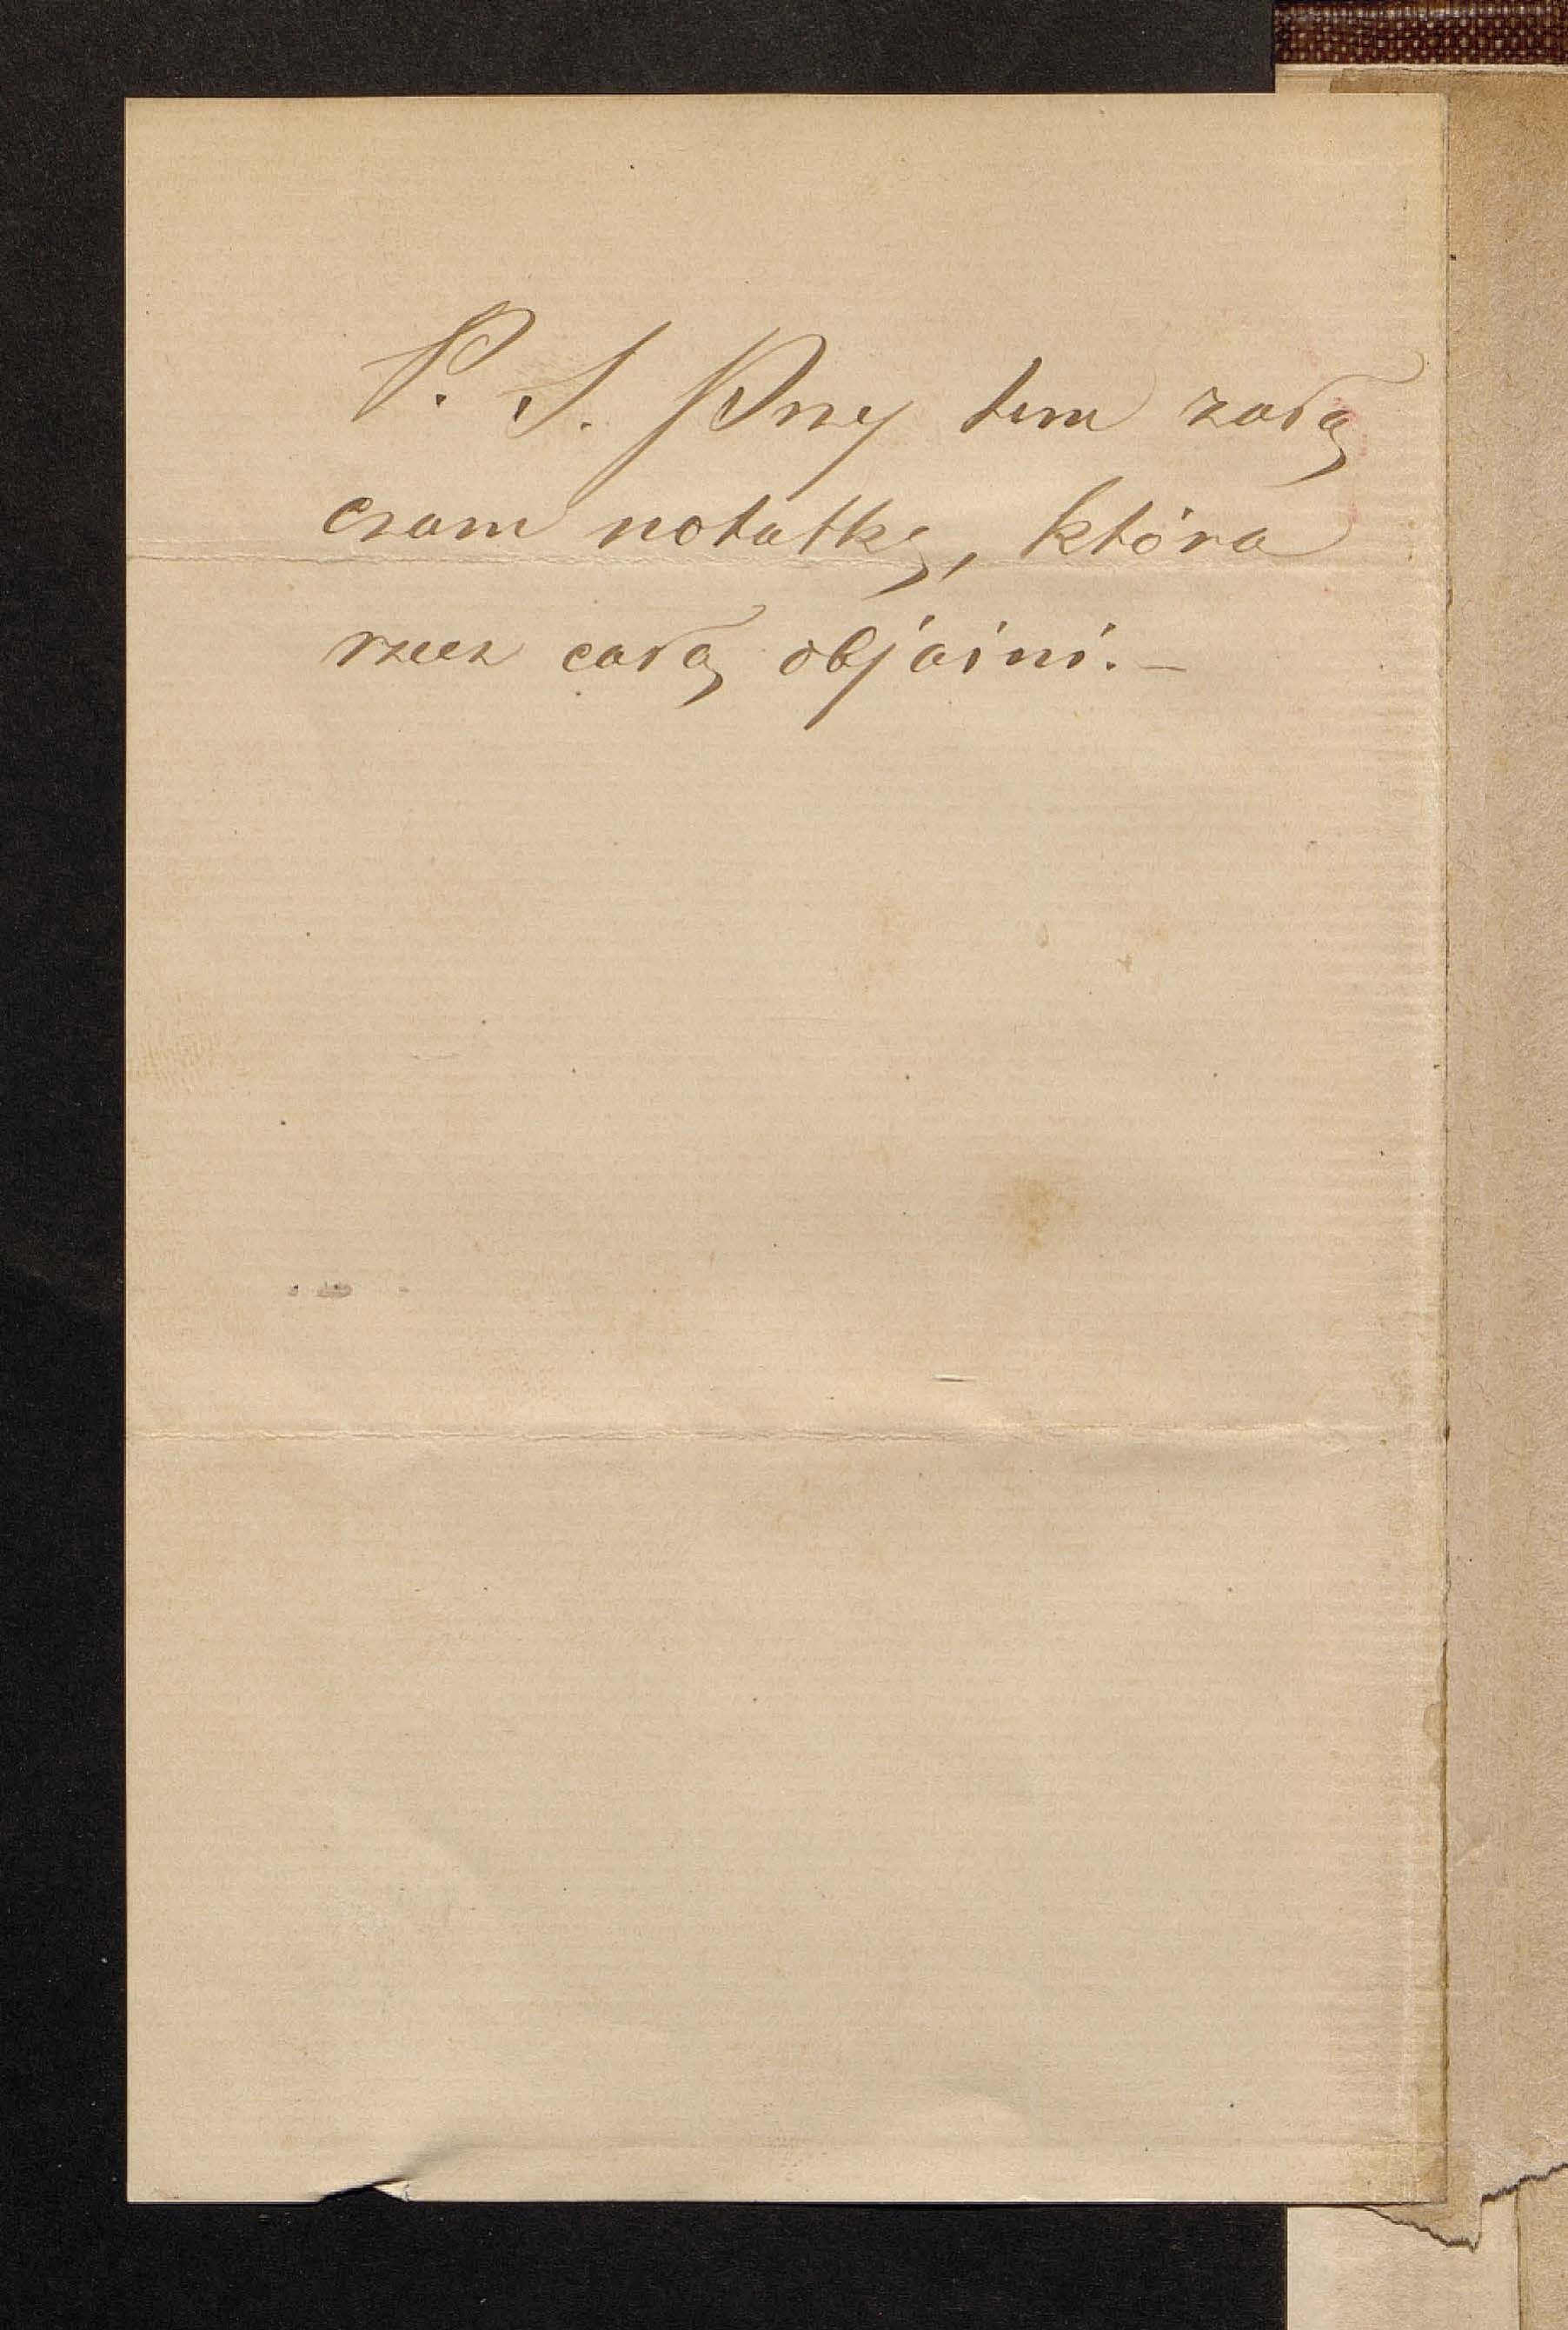 P. S. Przy tem załą
czam notatkę, która
rzecz całą objaśni.—